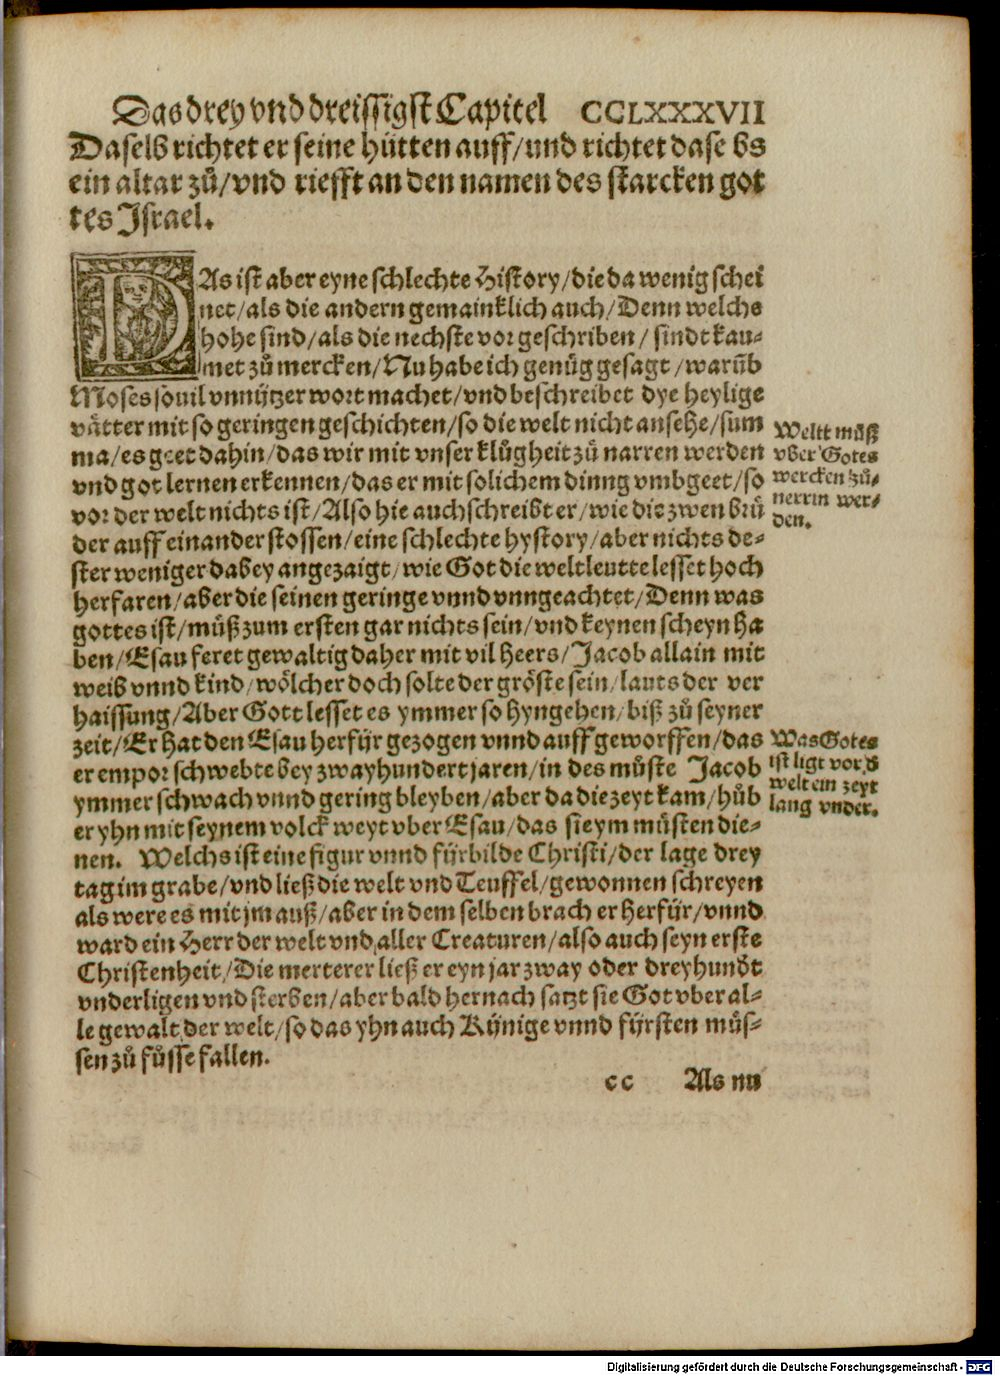 Das drey vnd dreissigst Capitel CCLXXXVII
Daselb richtet er seine hütten auff/und richtet dase bs
ein altar zů/vnd riefft an den namen des starcken got
tes Israel.
DAs ist aber eyne schlechte History/die da wenig schei
net/als die andern gemainklich auch/Denn welche
hohe sind/als die nechste vor geschriben/ sindt kau-
met zů mercken/Nu habe ich genůg gesagt/warũb
Moses souil vnnützer wort machet/vnd beschreibet dye heylige
vätter mit so geringen geschichten/so die welt nicht ansehe/sum
ma/es geet dahin/das wir mit vnser klůgheit zů narren werden
vnd got lernen erkennen/das er mit solichem dinng vmbgeet/so
vor der welt nichts ist/Also hie auch schreibt er/wie die zwen brů
der auff einander stossen/eine schlechte hystory/aber nichts de-
ster weniger dabey angezaigt/wie Got die weltleutte lesset hoch
herfaren/aber die seinen geringe vnnd vnngeachtet/Denn was
gottes ist/můß zum ersten gar nichts sein/vnd keynen scheyn ha
ben/Esau feret gewaltig daher mit vil heers/Jacob allain mit
weib vnnd kind/wölcher doch solte der gröste sein/lauts der ver
haissung/Aber Gott lesset es ymmer so hyngehen/biß zů seyner
zeit/Er hat den Esau herfür gezogen vnnd auff geworffen/das
er empor schwebte bey zwayhundert jaren/in des můste Jacob
ymmer schwach vnnd gering bleyben/aber da die zeyt kam/hůb
er yhn mit seynem volck weyt vber Esau/das sie ym můsten die-
nen. Welchs ist eine figur vnnd fürbilde Christi/der lage drey
tag im grabe/vnd ließ die welt vnd Teuffel/gewonnen schreyen
als were es mit jm auß/aber in dem selben brach er herfür/vnnd
ward ein Herr der welt vnd aller Creaturen/also auch seyn erste
Christenheit/Die merterer ließ er eyn jar zway oder dreyhundt
vnderligen vnd sterben/aber bald hernach satzt sie Got vber al-
le gewalt der welt/so das yhn auch Künige vnnd fürsten müs-
sen zů fůsse fallen.
cc Als nu
Weltt můß
vber Gotes
wercken zů-
nerrin wer-
den.
Was Gotes
ist ligt vor d
welt ein zeyt
lang vnder.
Digitalisierung gefördert durch die Deutsche Forschungsgemeinschaft - DFG